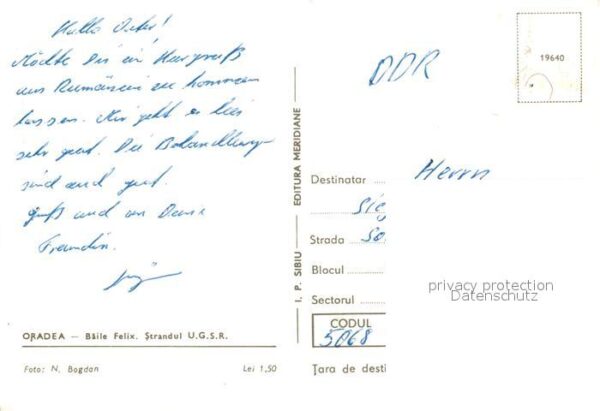 Hallo
Möchte Dir ein Kurgruß
aus Rumänien zukommen
lassen. Mir geht es hier
sehr gut. Die Behandlungen
sind auch gut.
Gruß auch an Deine
Freundin.
DDR
19640
Herrn
Destinatar
Sieg
Strada So
Blocul
Sectorul
CODUL
5068
Țara de desti
I. P. SIBIU EDITURA MERIDIANE
privacy protection
Datenschutz
ORADEA — Băile Felix. Ștrandul U.G.S.R.
Foto: N. Bogdan Lei 1,50